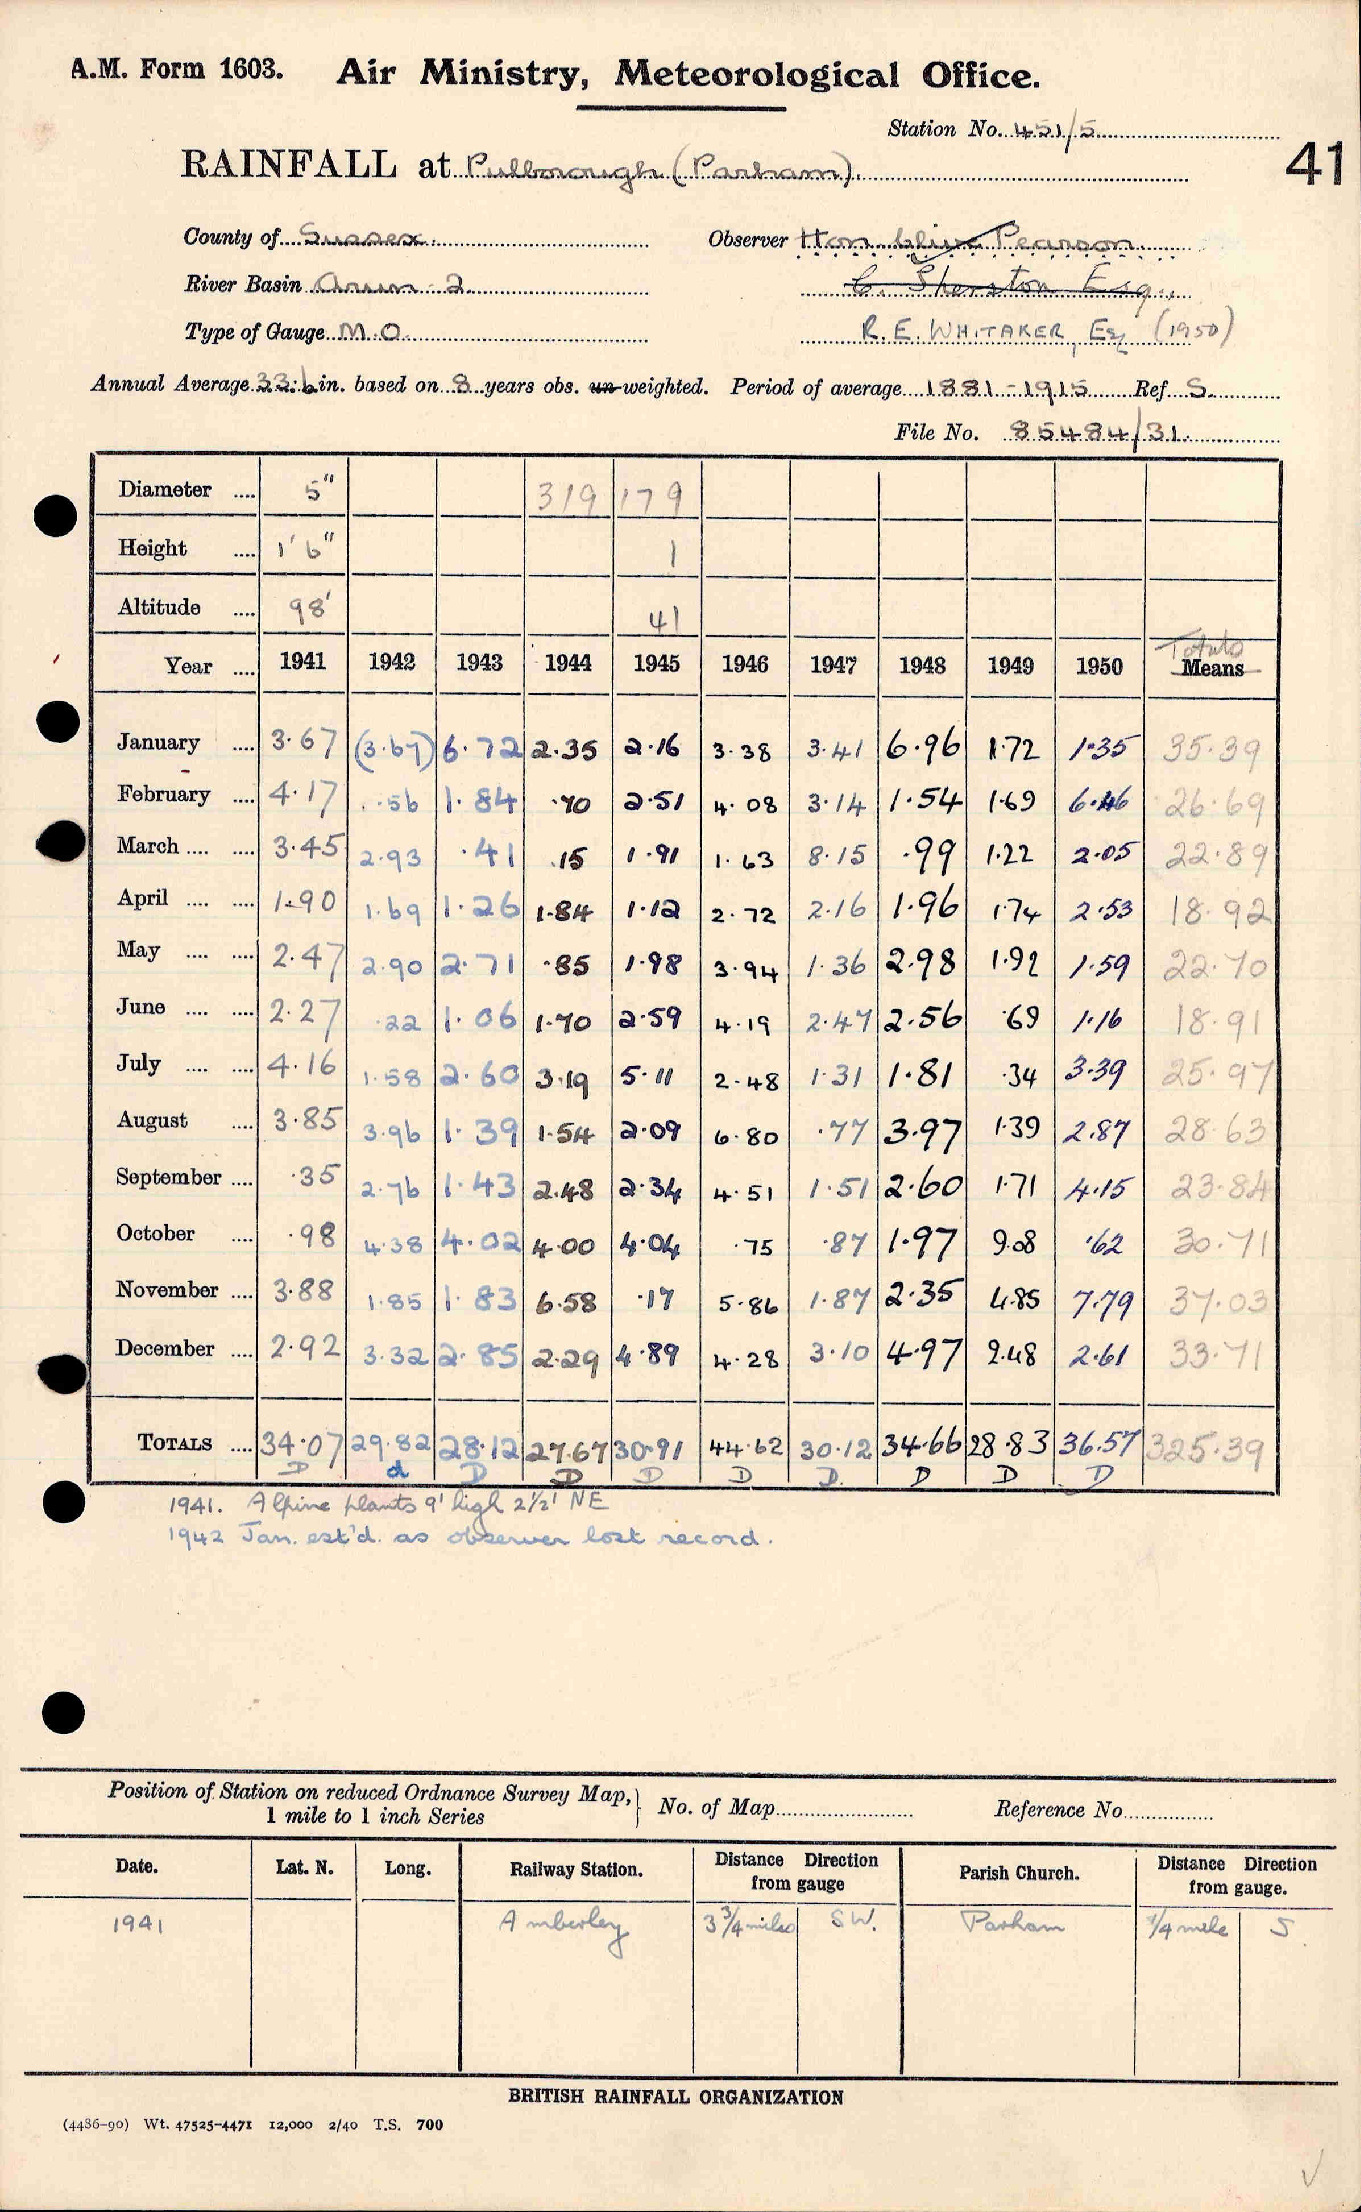 A.M. Form 1603. Air Ministry, Meteorological Office.
Station No. 451/5
41
RAINFALL at Pulborough (Parham).
County of Sussex. Observer Hon Clive Pearson
River Basin Arun 2 C. Sherston Esq.,
Type of Gauge M.O. R.E. WHITAKER, Esq (1950)
Annual Average 33.6 in. based on 8 years obs. un-weighted. Period of average 1881-1915 Ref S.
File No. 85484/31.
Diameter .... 5" 319 179
Height .... 1' 6" 1
Altitude .... 98' 41
Totals
Year .... 1941 1942 1943 1944 1945 1946 1947 1948 1949 1950 Means
January .... 3.67 (3.67) 6.72 2.35 2.16 3.38 3.41 6.96 1.72 1.35 35.39
February .... 4.17 .56 1.84 .70 2.51 4.08 3.14 1.54 1.69 6.46 26.69
March .... .... 3.45 2.93 .41 .15 1.91 1.63 8.15 .99 1.22 2.05 22.89
April .... .... 1.90 1.69 1.26 1.84 1.12 2.72 2.16 1.96 1.74 2.53 18.92
May .... .... 2.47 2.90 2.71 .85 1.98 3.94 1.36 2.98 1.92 1.59 22.70
June .... .... 2.27 .22 1.06 1.70 2.59 4.19 2.47 2.56 .69 1.16 18.91
July .... .... 4.16 1.58 2.60 3.19 5.11 2.48 1.31 1.81 .34 3.39 25.97
August .... 3.85 3.96 1.39 1.54 2.09 6.80 .77 3.97 1.39 2.87 28.63
September .... .35 2.76 1.43 2.48 2.34 4.51 1.51 2.60 1.71 4.15 23.84
October .... .98 4.38 4.02 4.00 4.04 .75 .87 1.97 9.08 .62 30.71
November .... 3.88 1.85 1.83 6.58 .17 5.86 1.87 2.35 4.85 7.79 37.03
December .... 2.92 3.32 2.85 2.29 4.89 4.28 3.10 4.97 2.48 2.61 33.71
TOTALS .... 34.07 29.82 28.12 27.67 30.91 44.62 30.12 34.66 28.83 36.57 325.39
D d D D D D D D D D
1941. Alpine plants 9' high 2½' NE
1942 Jan. est'd. as observer lost record.
Position of Station on reduced Ordnance Survey Map, 1 mile to 1 inch Series } No. of Map Reference No
Date. Lat. N. Long. Railway Station. Distance Direction from gauge Parish Church. Distance Direction from gauge.
1941 Amberley 3¾ miles SW. Parham ¼ mile S.
BRITISH RAINFALL ORGANIZATION
(4486-90) Wt. 47525-4471 12,000 2/40 T.S. 700